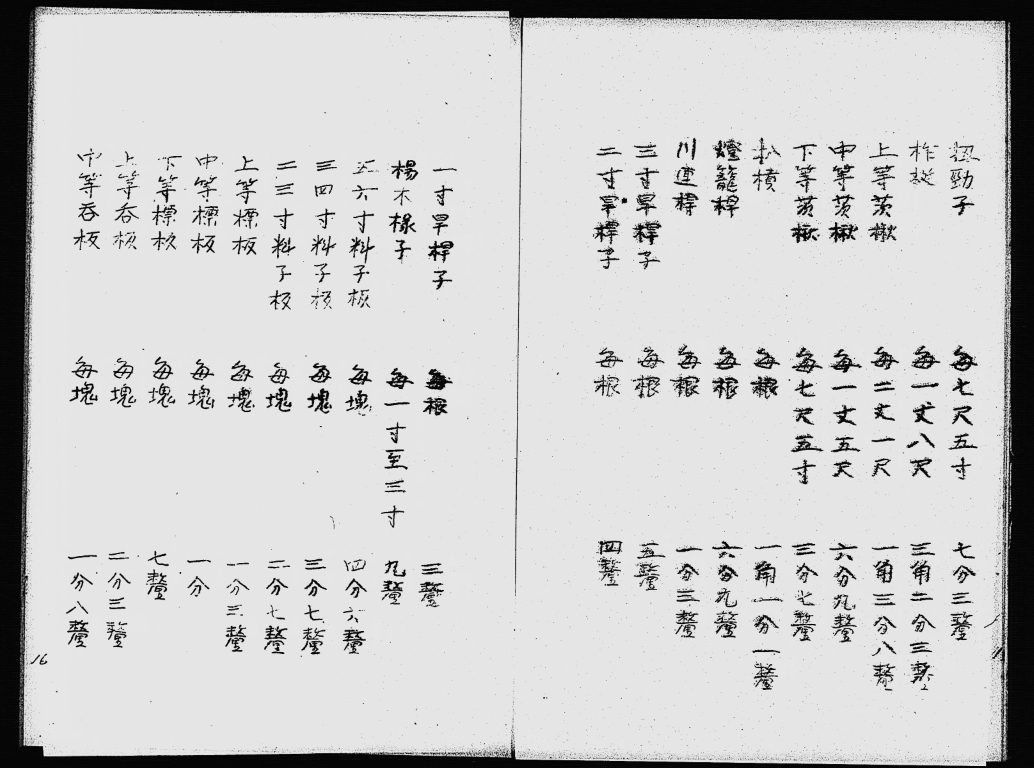 勁子 每七尺五寸 七分三釐
柞樅 每一丈八尺 三角二分三釐
上等茨楸 每二丈一尺 一角三分八釐
中等茨楸 每一丈五尺 六分九釐
下等茨楸 每七尺五寸 三分七釐
每根 一角一分一釐
燈籠桿 每根 六分九釐
川連桿 每根 一分三釐
三寸旱桿子 每根 五釐
二寸旱桿子 每根 四釐
一寸旱桿子 每根 三釐
楊木椽子 每一寸至三寸 九釐
五六寸料子板 每塊 四分六釐
三四寸料子板 每塊 三分七釐
二三寸料子板 每塊 二分七釐
上等標板 每塊 一分三釐
中等標板 每塊 一分
下等標板 每塊 七釐
上等吞板 每塊 二分三釐
中等吞板 每塊 一分八釐
16